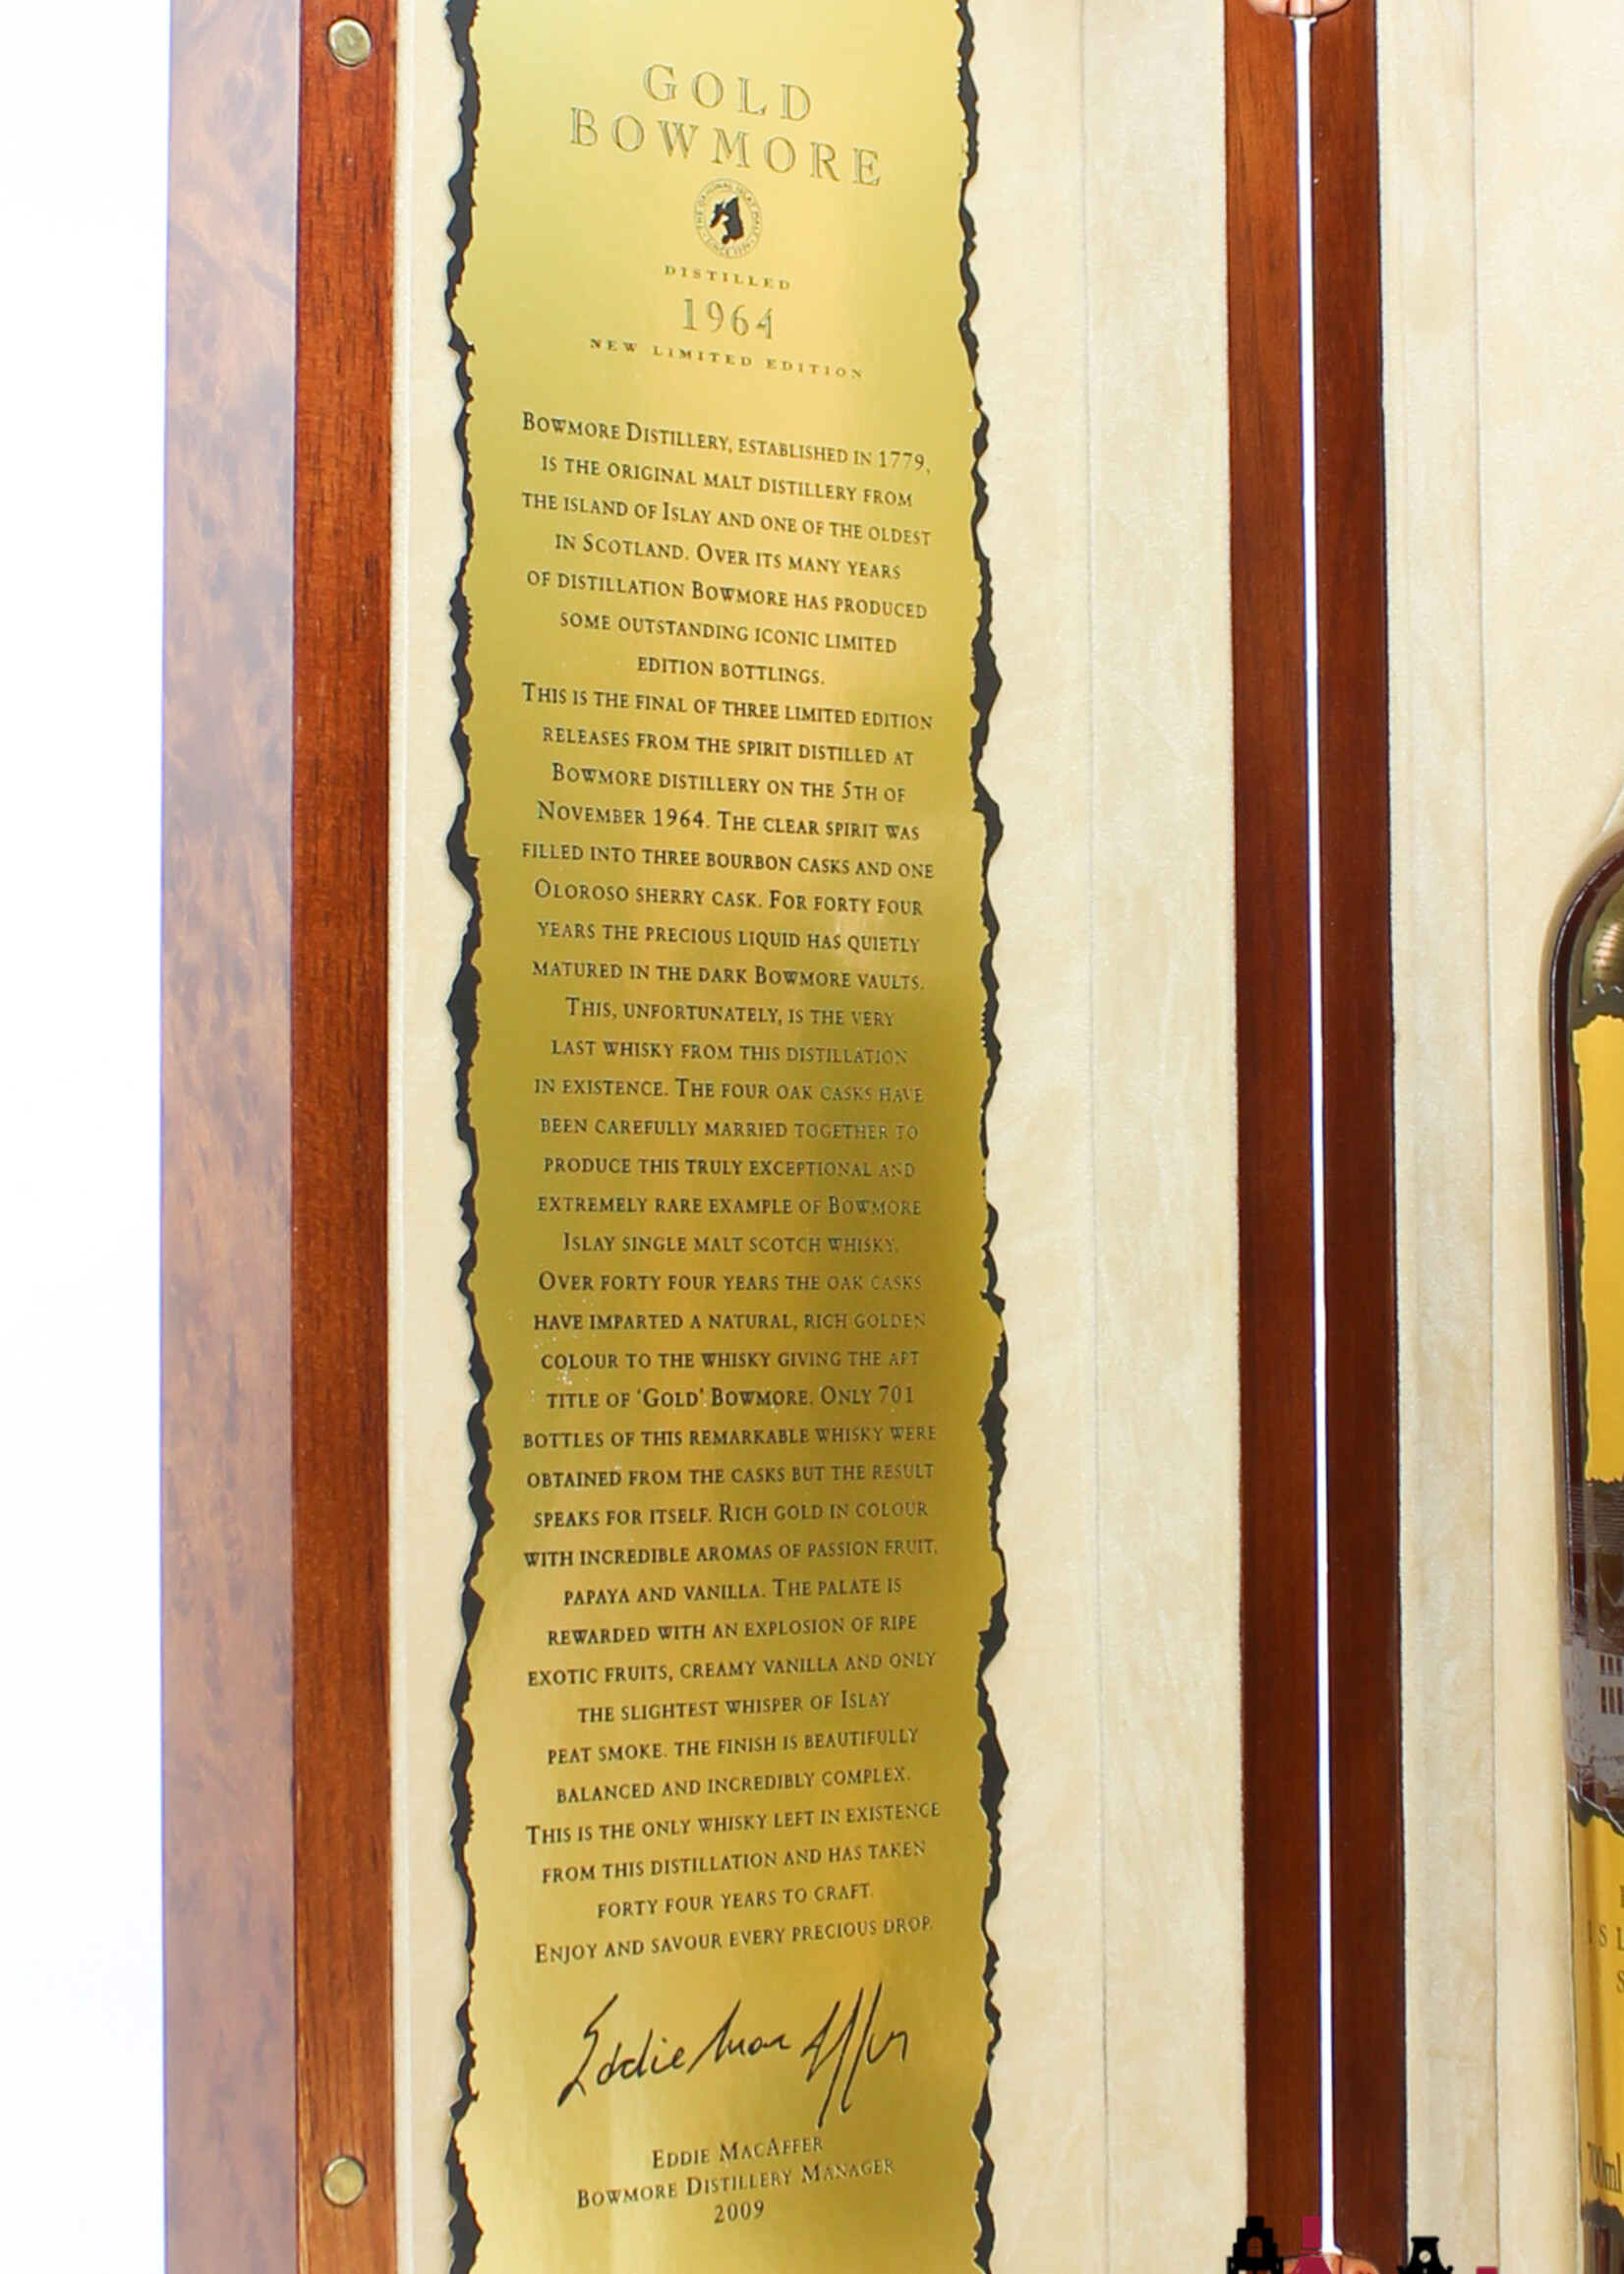 GOLD
BOWMORE
THE ORIGINAL ISLAY MALT
SINCE 1779
DISTILLED
1964
NEW LIMITED EDITION
BOWMORE DISTILLERY, ESTABLISHED IN 1779,
IS THE ORIGINAL MALT DISTILLERY FROM
THE ISLAND OF ISLAY AND ONE OF THE OLDEST
IN SCOTLAND. OVER ITS MANY YEARS
OF DISTILLATION BOWMORE HAS PRODUCED
SOME OUTSTANDING ICONIC LIMITED
EDITION BOTTLINGS.
THIS IS THE FINAL OF THREE LIMITED EDITION
RELEASES FROM THE SPIRIT DISTILLED AT
BOWMORE DISTILLERY ON THE 5TH OF
NOVEMBER 1964. THE CLEAR SPIRIT WAS
FILLED INTO THREE BOURBON CASKS AND ONE
OLOROSO SHERRY CASK. FOR FORTY FOUR
YEARS THE PRECIOUS LIQUID HAS QUIETLY
MATURED IN THE DARK BOWMORE VAULTS.
THIS, UNFORTUNATELY, IS THE VERY
LAST WHISKY FROM THIS DISTILLATION
IN EXISTENCE. THE FOUR OAK CASKS HAVE
BEEN CAREFULLY MARRIED TOGETHER TO
PRODUCE THIS TRULY EXCEPTIONAL AND
EXTREMELY RARE EXAMPLE OF BOWMORE
ISLAY SINGLE MALT SCOTCH WHISKY.
OVER FORTY FOUR YEARS THE OAK CASKS
HAVE IMPARTED A NATURAL, RICH GOLDEN
COLOUR TO THE WHISKY GIVING THE APT
TITLE OF 'GOLD' BOWMORE. ONLY 701
BOTTLES OF THIS REMARKABLE WHISKY WERE
OBTAINED FROM THE CASKS BUT THE RESULT
SPEAKS FOR ITSELF. RICH GOLD IN COLOUR
WITH INCREDIBLE AROMAS OF PASSION FRUIT,
PAPAYA AND VANILLA. THE PALATE IS
REWARDED WITH AN EXPLOSION OF RIPE
EXOTIC FRUITS, CREAMY VANILLA AND ONLY
THE SLIGHTEST WHISPER OF ISLAY
PEAT SMOKE. THE FINISH IS BEAUTIFULLY
BALANCED AND INCREDIBLY COMPLEX.
THIS IS THE ONLY WHISKY LEFT IN EXISTENCE
FROM THIS DISTILLATION AND HAS TAKEN
FORTY FOUR YEARS TO CRAFT.
ENJOY AND SAVOUR EVERY PRECIOUS DROP.
Eddie MacAffer
EDDIE MACAFFER
BOWMORE DISTILLERY MANAGER
2009